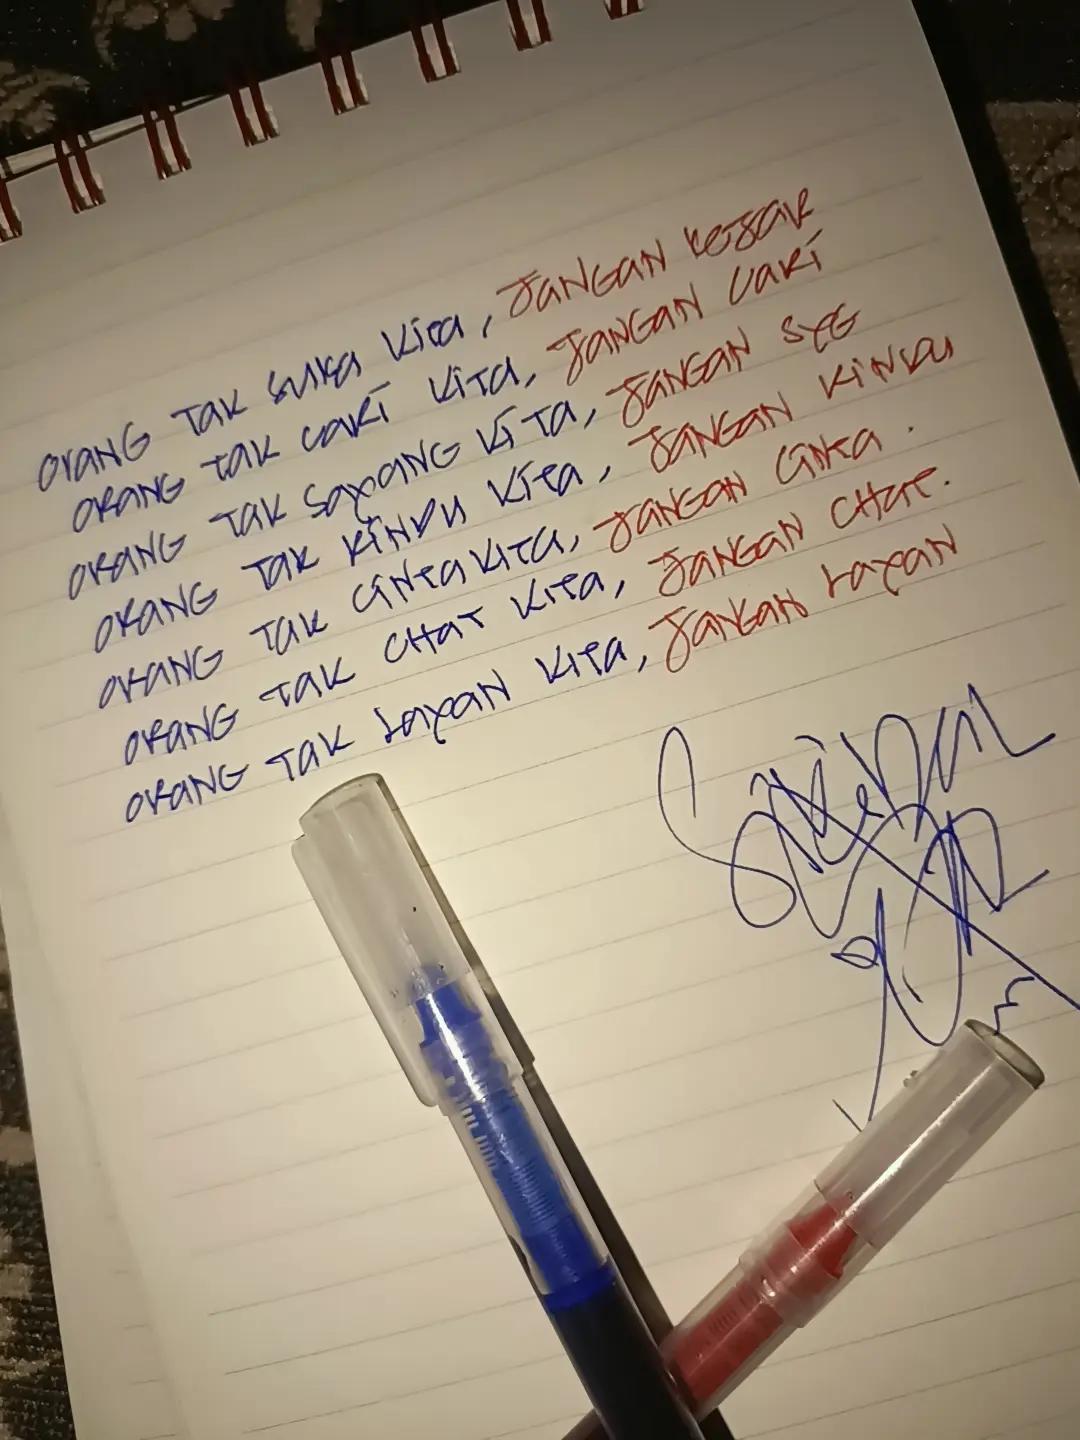 orang tak suka kita, Jangan kejar
orang tak cari kita, Jangan cari
orang tak sayang kita, Jangan syg
orang tak rindu kita, Jangan rindu
orang tak cinta kita, Jangan cinta.
orang tak chat kita, Jangan chat.
orang tak layan kita, Jangan layan